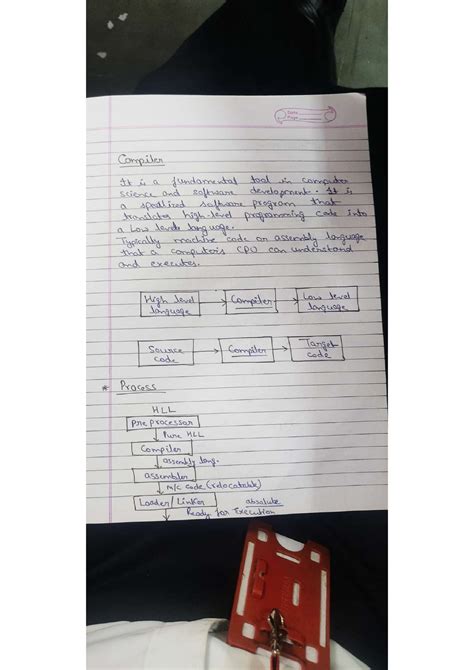 Date
Page
Compiler
It is a fundamental tool in computer
science and software development. It is
a specilized software program that
translates high level programming code into
a Low levele language.
Typically machine code or assembly language
that a computer's CPU can understand
and executes.
High level language → Compiler → Low level language
Source code → Compiler → Target code
* Process
HLL
preprocessor
↓ Pure HLL
Compiler
↓ assembly lang.
assembler
↓ M/C code (relocatable)
Loader/Linker absolute
↓ Ready for Execution